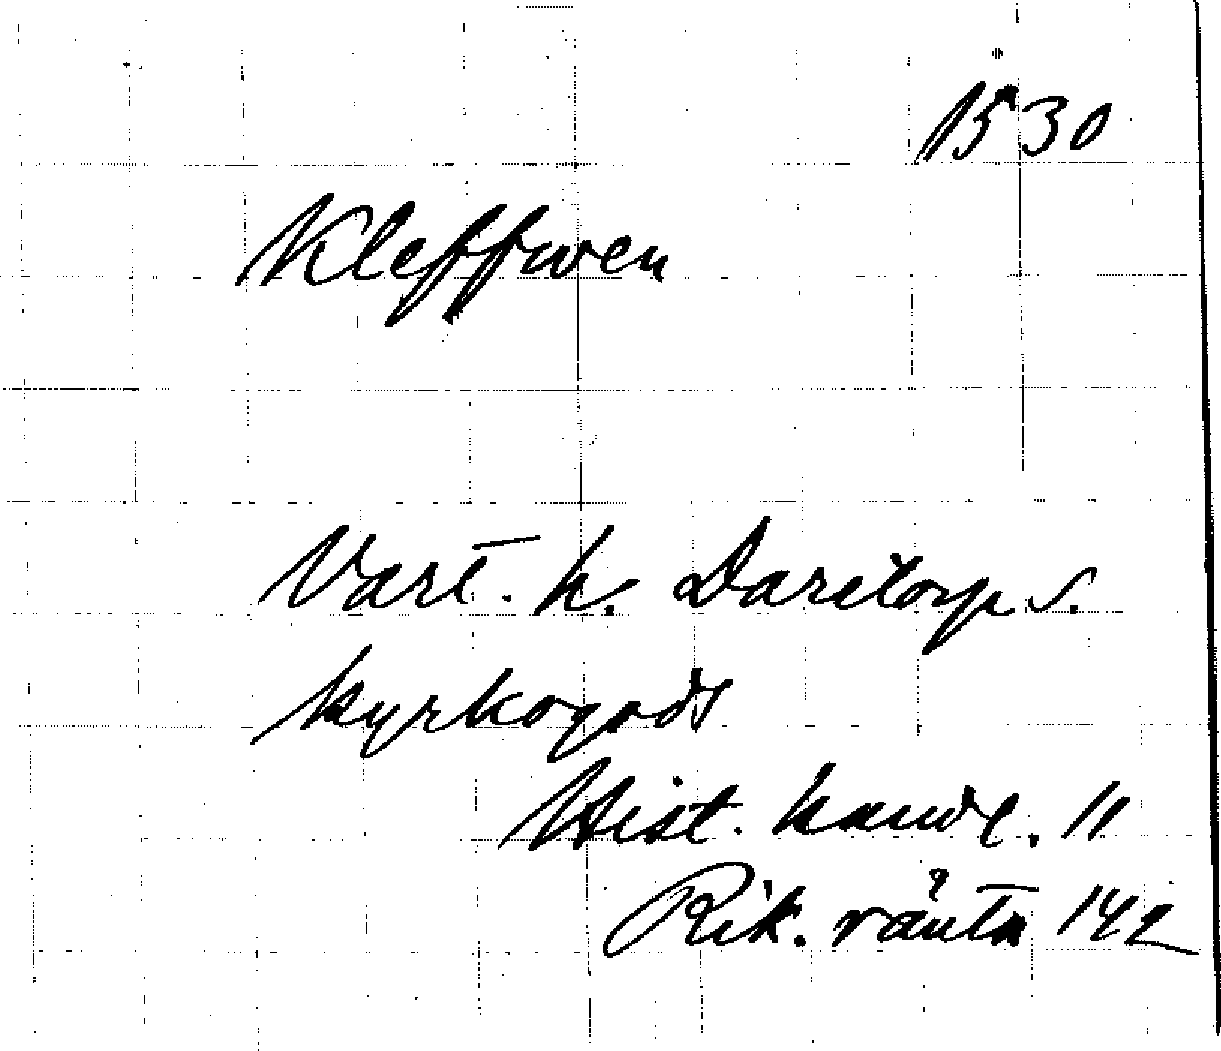 1530
Kleffwen
Vart. h. Daretorp s.
kyrkogods
Hist. handl. 11
Rik. ränta 142